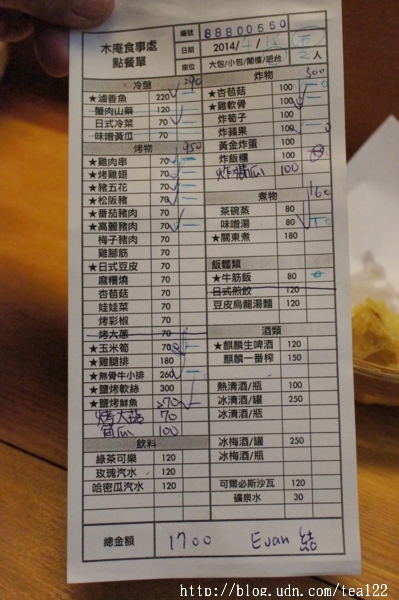 木庵食事處
點餐單
編號 88800550
日期 2014/4/
座位 大包/小包/閣樓/吧台 人
冷盤 290
★滷香魚 220
蟹肉山藥 120
日式冷菜 70
味噌黃瓜 70
烤物 950
★雞肉串 70
★烤雞翅 70
★豬五花 70
★松阪豬 70
★番茄豬肉 70
★高麗豬肉 70
梅子豬肉 70
雞腳筋 70
★日式豆皮 70
麻糬燒 70
杏苞菇 70
娃娃菜 70
烤彩椒 70
烤大蔥 70
★玉米筍 70
★雞腿排 180
★無骨牛小排 260
★鹽烤軟絲 300
★鹽烤鮮魚 270
烤大菇 70
角瓜 100
飲料
綠茶可樂 120
玫瑰汽水 120
哈密瓜汽水 120
炸物 300
★杏苞菇 100
★雞軟骨 100
炸筍子 100
炸蘋果 100
黃金炸蛋 100
炸飯糰 100
炸櫛瓜 100
煮物 160
茶碗蒸 80
味噌湯 80
★關東煮 180
飯麵類
★牛筋飯 80
日式煎餃 120
豆皮烏龍湯麵 120
酒類
★麒麟生啤酒 120
麒麟一番榨 150
熱清酒/瓶 100
冰清酒/罐 250
冰清酒/瓶
冰梅酒/罐 250
冰梅酒/瓶
可爾必斯沙瓦 120
礦泉水 30
總金額 1700 Evan 結
http://blog.udn.com/tea122